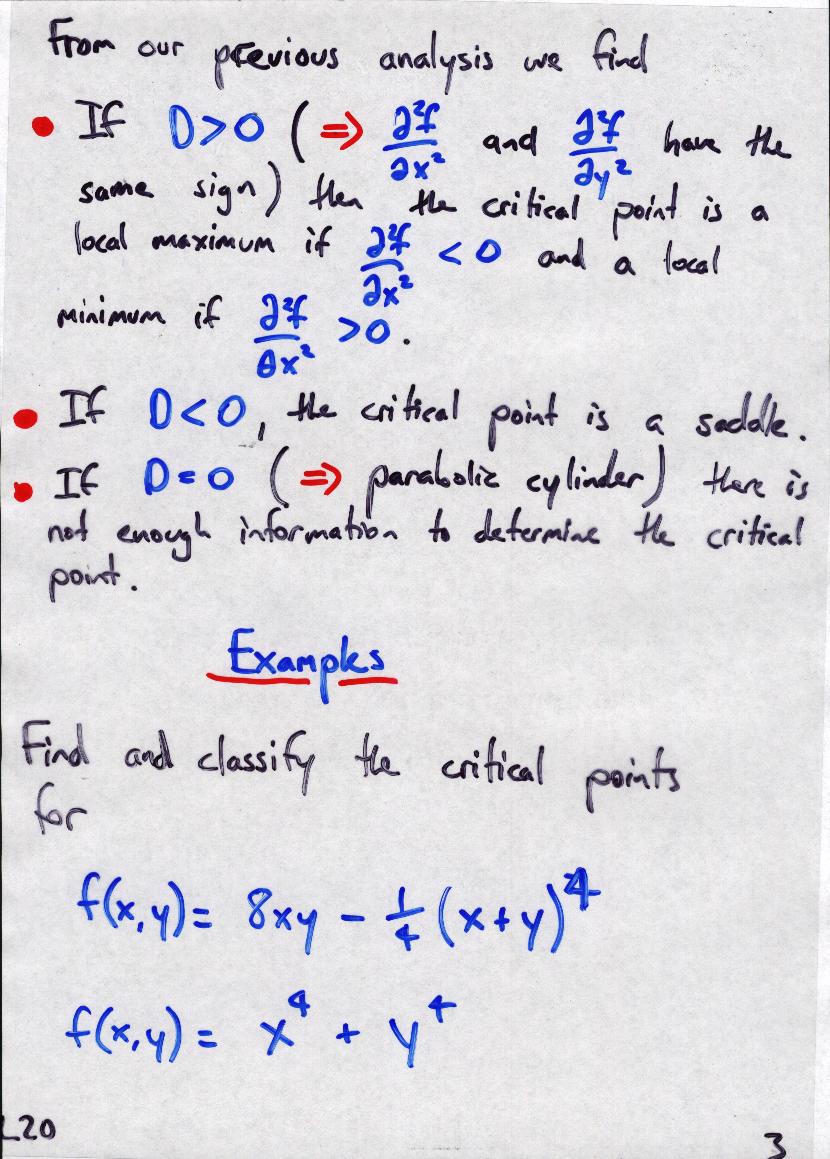 From our previous analysis we find
• If D>0 (⇒ ∂²f/∂x² and ∂²f/∂y² have the
same sign) then the critical point is a
local maximum if ∂²f/∂x² < 0 and a local
minimum if ∂²f/∂x² >0.
• If D<0, the critical point is a saddle.
• If D=0 (⇒ parabolic cylinder) there is
not enough information to determine the critical
point.
Examples
Find and classify the critical points
for
f(x,y)= 8xy - 1/4 (x+y)⁴
f(x,y)= x⁴ + y⁴
L20
3